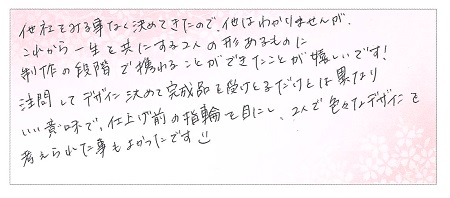 他社をみる事なく決めてきたので、他はわかりませんが、
これから一生を共にする2人の形あるものに
制作の段階で携われることができたことが嬉しいです!
注問してデザイン決めて完成品を受けとるだけとは異なり
いい意味で、仕上げ前の指輪を目にし、2人で色々なデザインを
考えられた事もよかったです